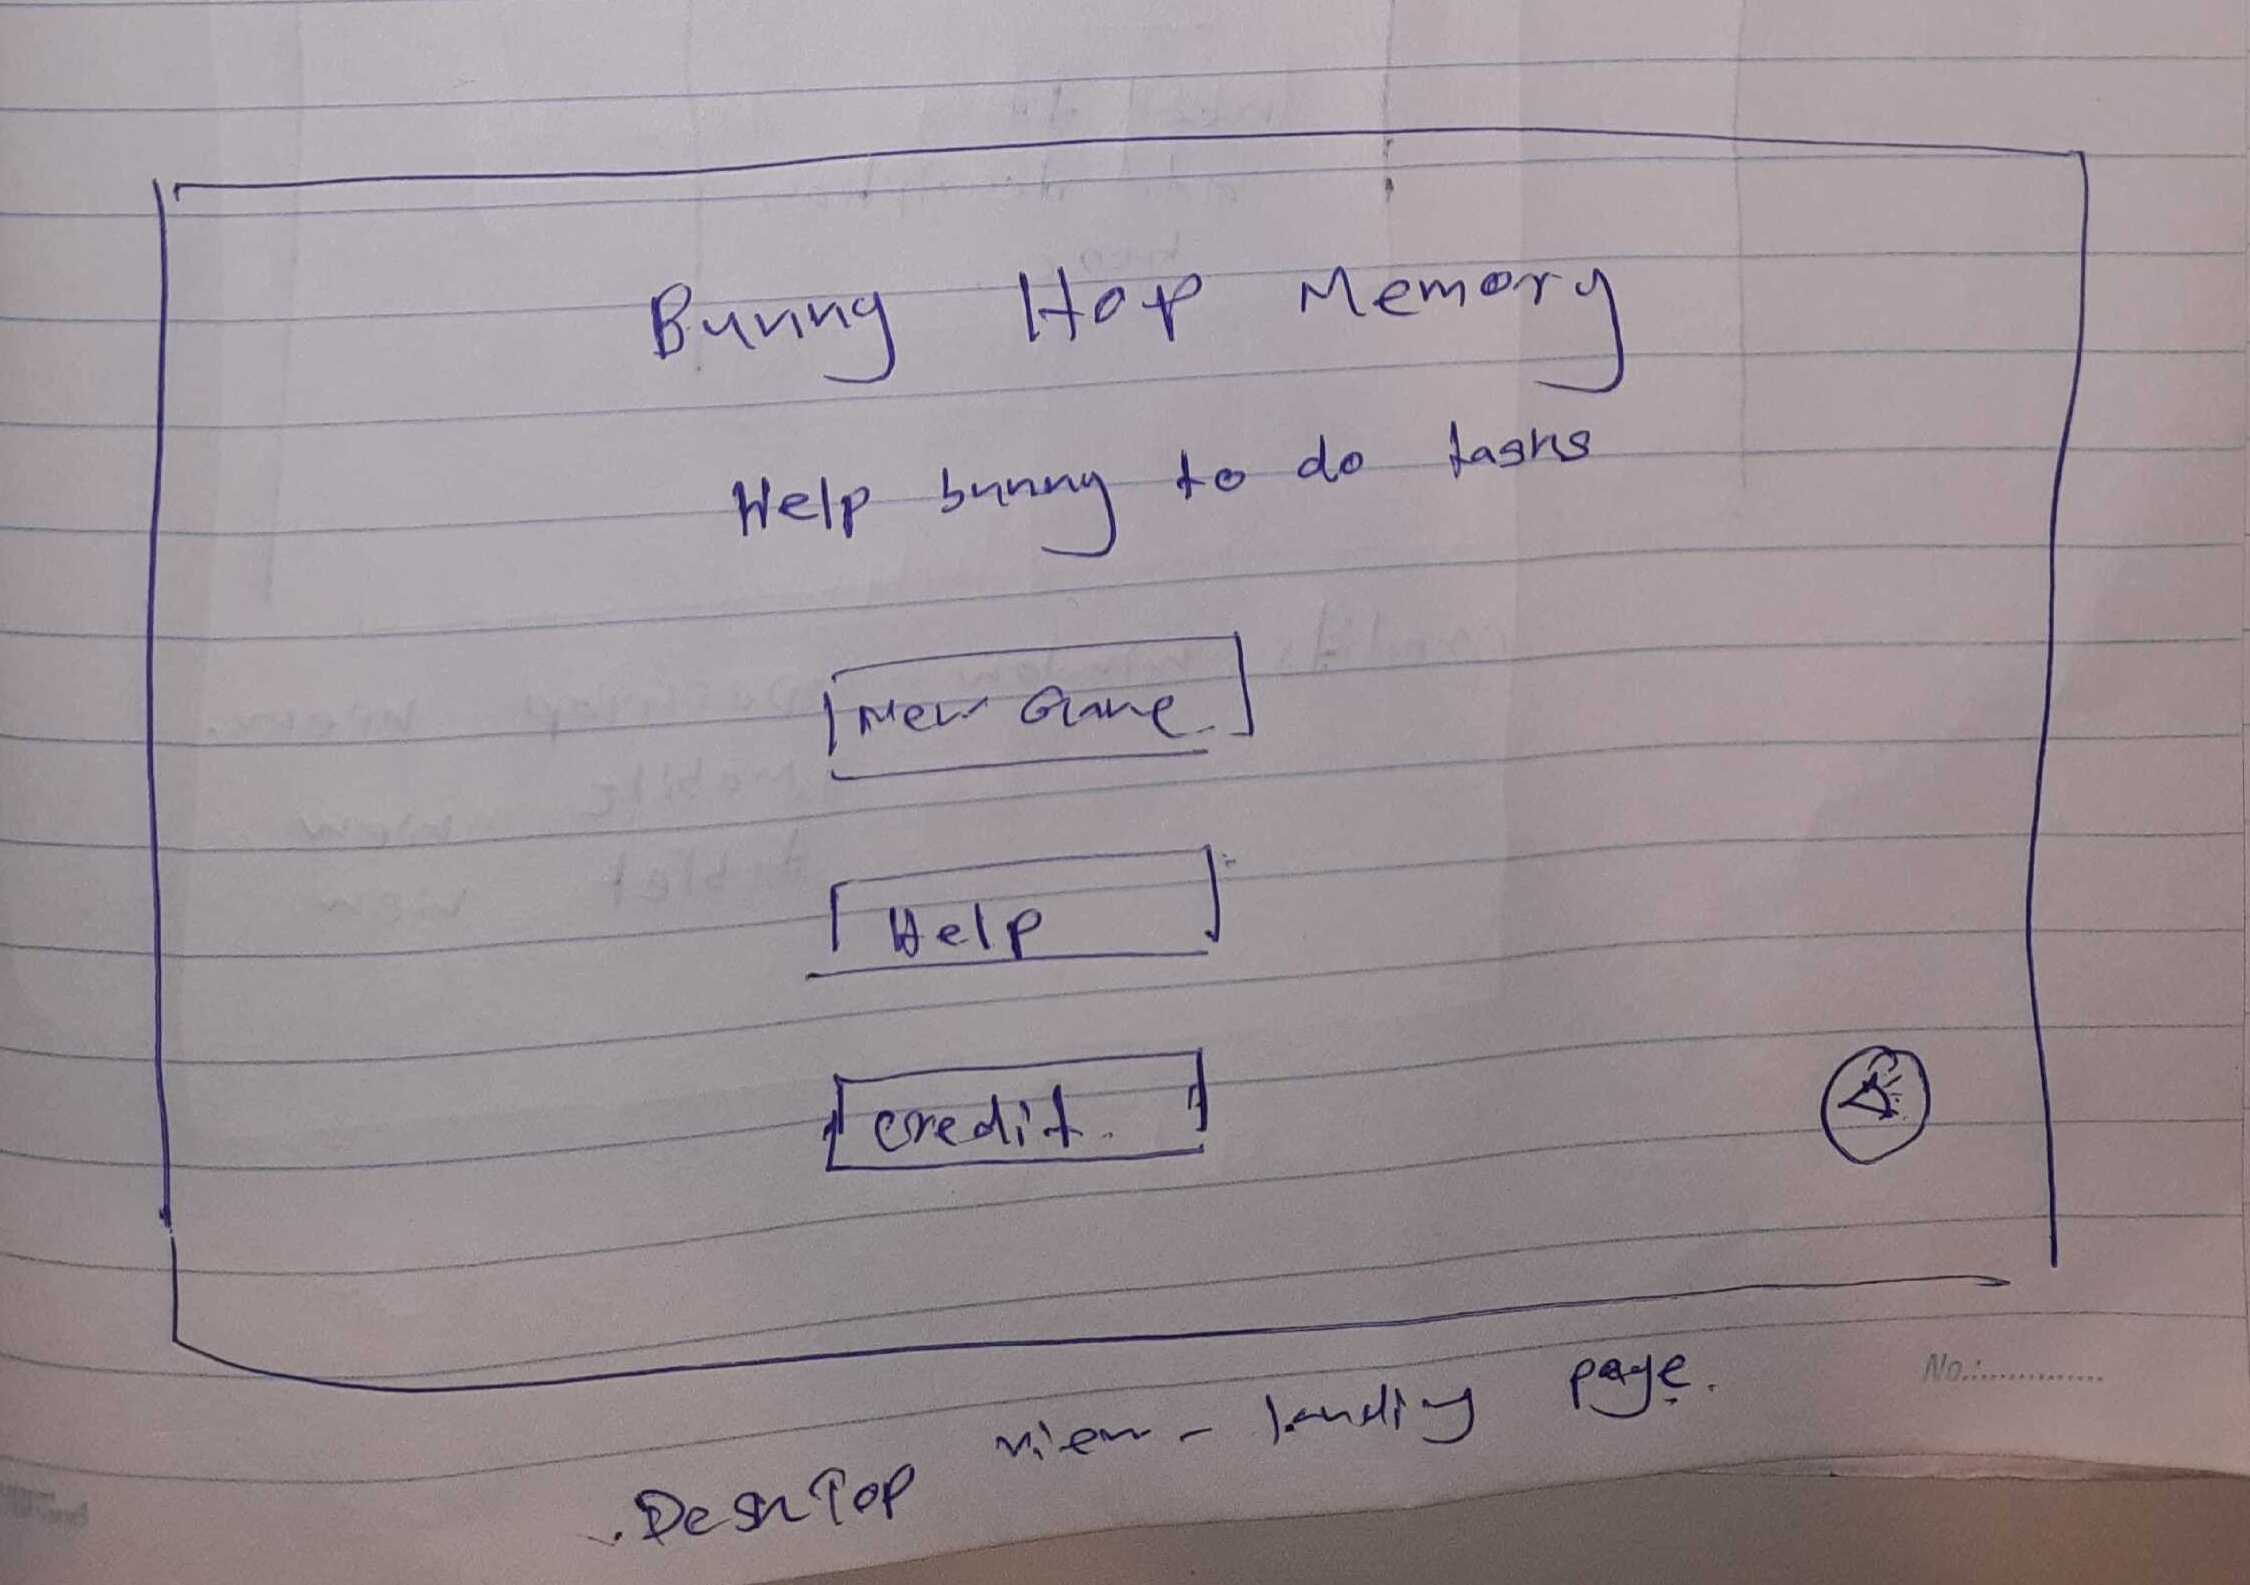 Bunny Hop Memory
Help bunny to do tasks
New Game
Help
credit.
DeskTop view - landing page.
No.:................